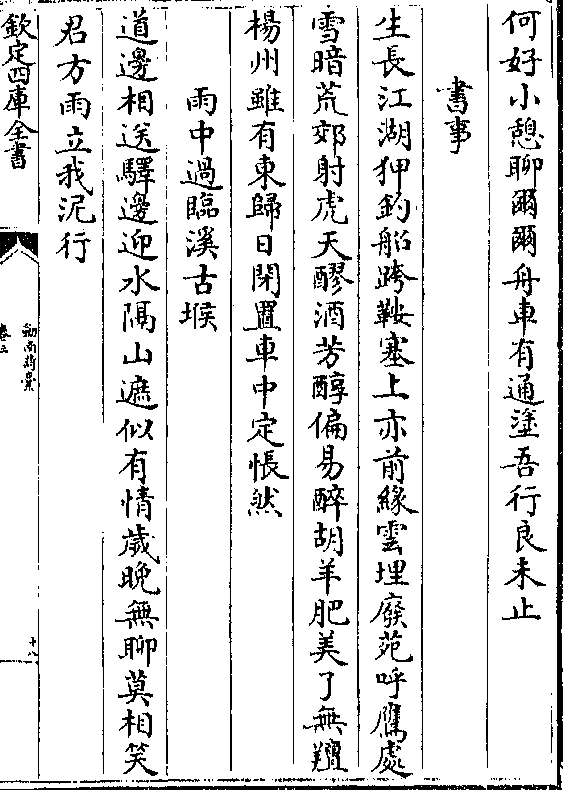 何好小憩聊爾爾舟車有通塗吾行良未止
書事
生長江湖狎釣船跨鞍塞上亦前緣雲埋廢苑呼鷹處
雪暗荒郊射虎天醪酒芳醇偏易醉胡羊肥美了無羶
楊州雖有東歸日閉置車中定悵然
雨中過臨溪古堠
道邊相送驛邊迎水隔山遮似有情歲晚無聊莫相笑
君方雨立我泥行
欽定四庫全書
劍南詩槀
卷三
十八